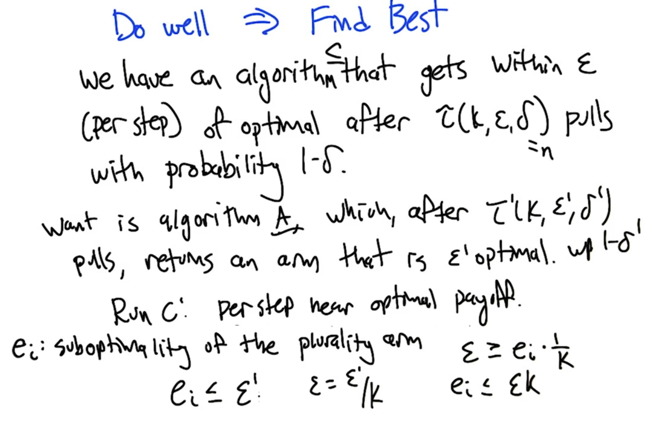 Do well ⇒ Find Best
we have an algorithm C that gets within ε
(per step) of optimal after τ(k, ε, δ) pulls
=n
with probability 1-δ.
want is algorithm A, which, after τ'(k, ε', δ')
pulls, returns an arm that is ε' optimal. wp 1-δ'
Run C: per step near optimal payoff.
eᵢ: suboptimality of the plurality arm ε ≥ eᵢ · 1/k
eᵢ ≤ ε' ε = ε'/k eᵢ ≤ εk